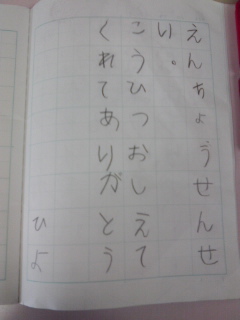 えんちょうせんせ
い。
こうひつおしえて
くれてありがとう
ひよ